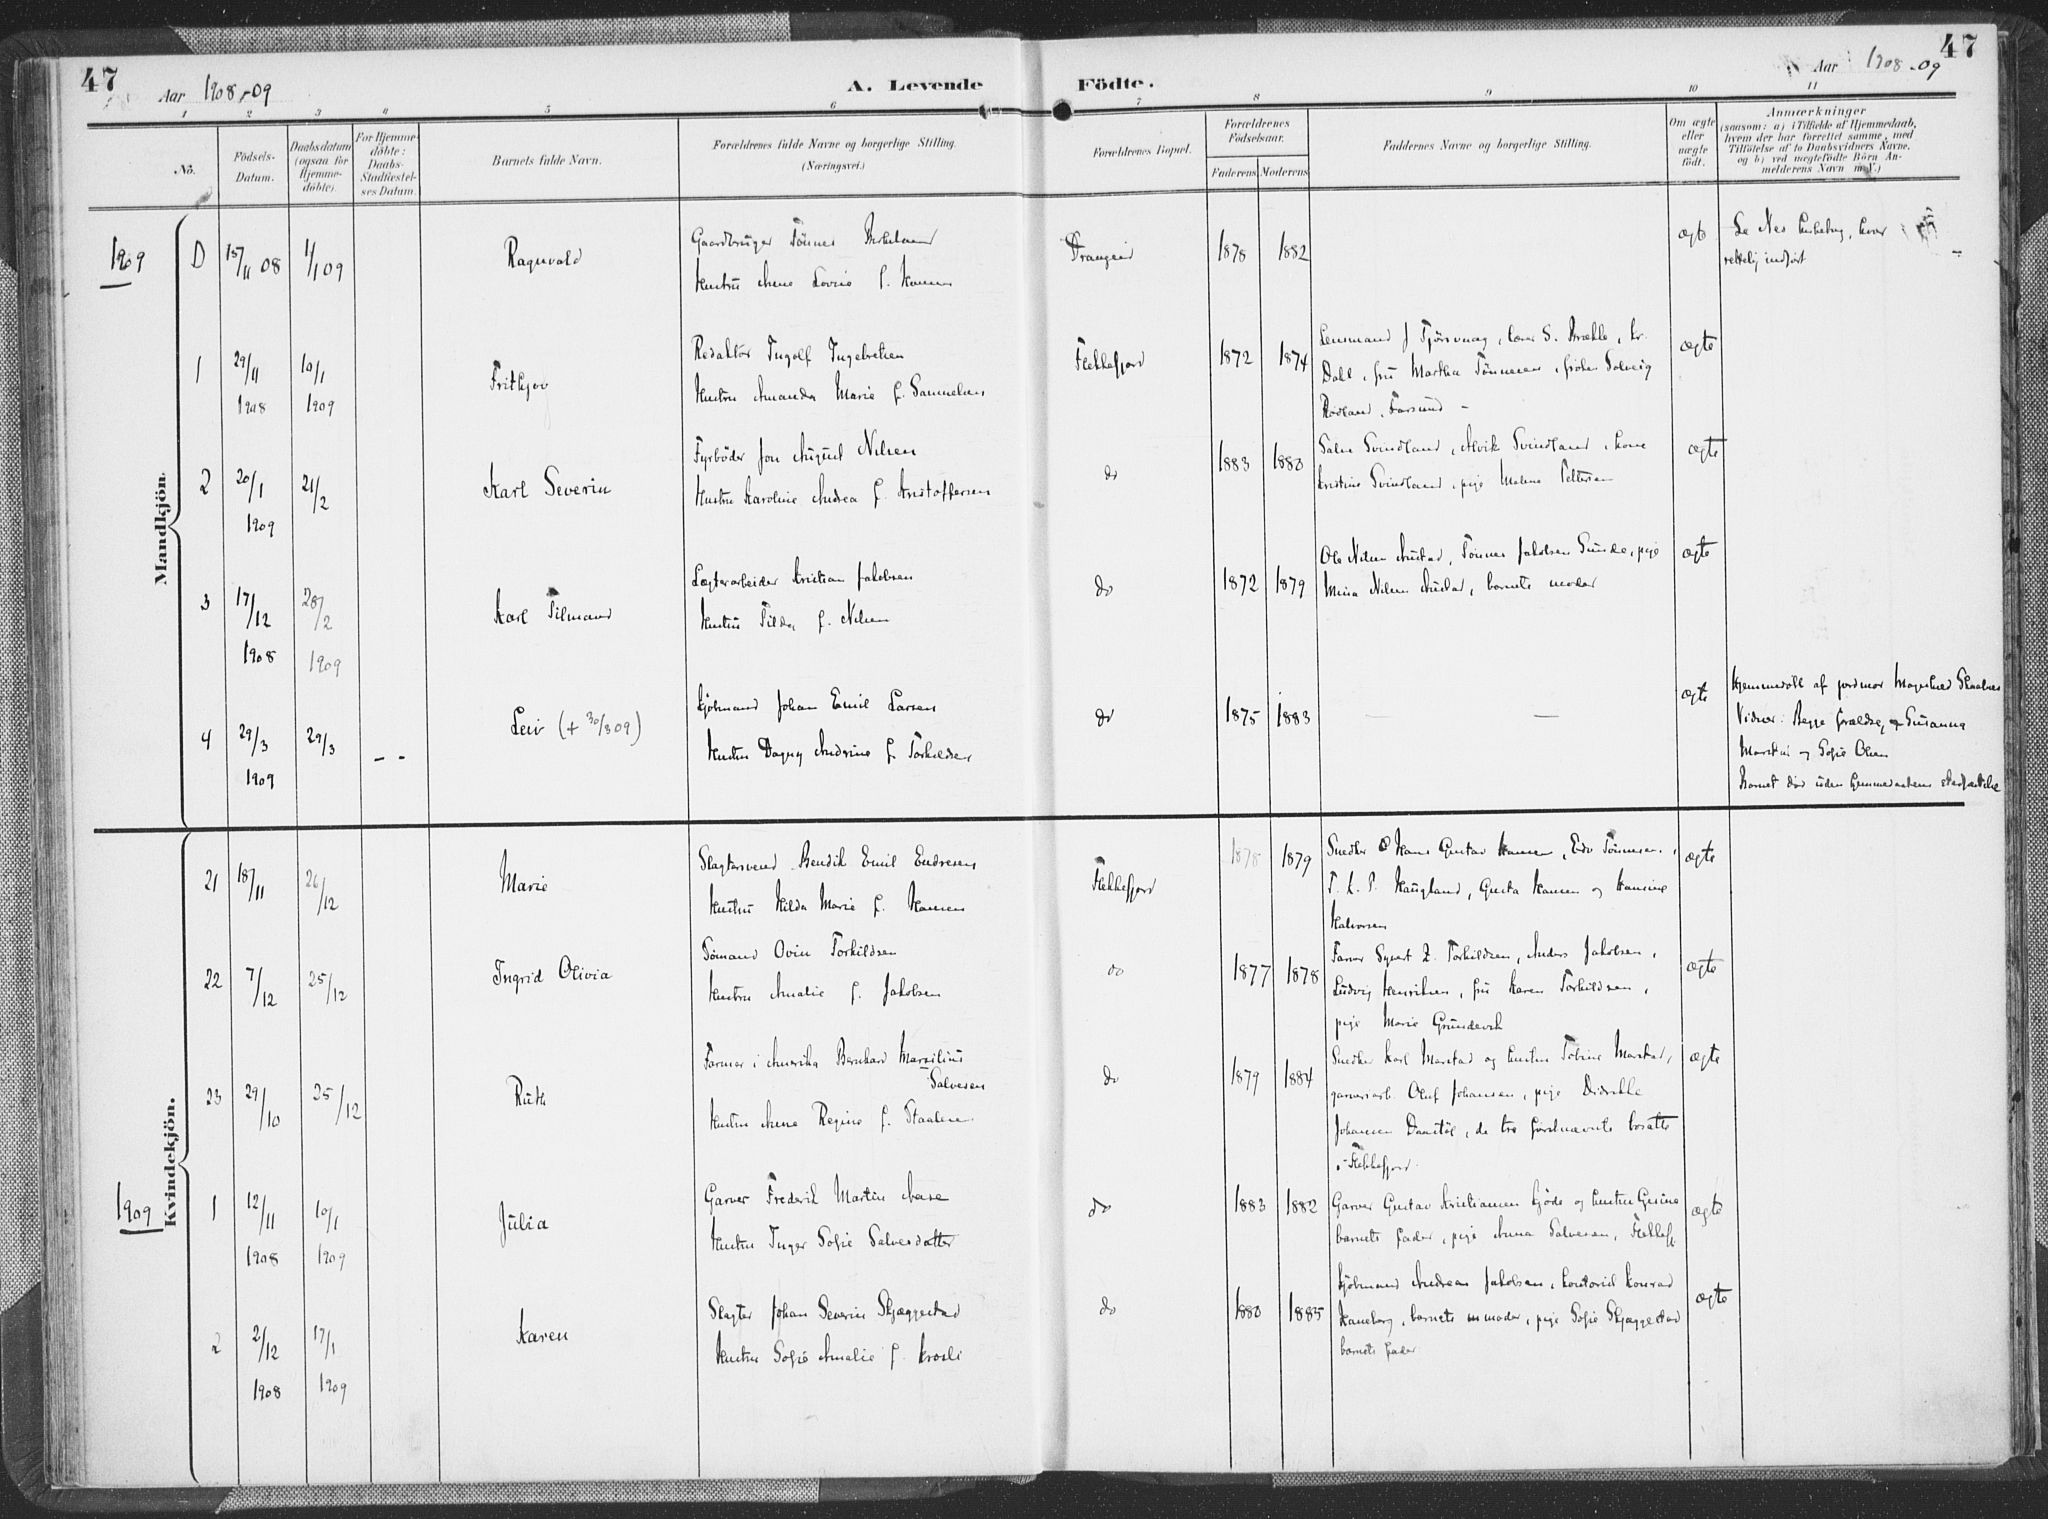 47
Aar 1908-09
A. Levende
Födte.
Aar 1908-09
47
1 2 3 4 5 6 7 8 9 10 11
No.
Födsels-
Datum.
Daabsdatum
(ogsaa for
Hjemme-
döbte).
For Hjemme-
döbte:
Daabs-
Stadfæstel-
ses Datum.
Barnets fulde Navn.
Forældrenes fulde Navne og borgerlige Stilling.
(Næringsvei.)
Forældrenes Bopæl.
Forældrenes
Födselsaar.
Faderens Moderens
Faddernes Navne og borgerlige Stilling.
Om ægte
eller
uægte
födt.
Anmærkninger
(saasom: a) i Tilfælde af Hjemmedaab,
hvem der har forrettet samme, med
Tilföielse af to Daabsvidners Navne,
og b) ved uægtefödte Börn An-
melderens Navn m. V.)
Mandkjön.
1909
D 15/11 08 1/1 09 Ragnvald
Gaardbruger Tönnes
Hustru Anne Lovise f. Hansen
Drangeid 1878 1882
ægte
Se Nes kirkebog, hvor
rettelig indfört
1 29/11 1908 10/1 1909 Frithjov
Redaktör Ingolf Ingebretsen
Hustru Amanda Marie f. Samuelsen
Flekkefjord 1872 1874
Lensmand J Tjörsvaag, S. Brække, kr.
Dahl, fru Martha Tönnesen, fröken Solveig
Rödland, Farsund -
ægte
2 20/1 1909 21/2 Karl Severin
Fyrböder Jon August Nilsen
Hustru Karoline Andrea f. Kristoffersen
do 1883 1880
Salve Svindland, Alvik Svindland, kone
Kristine Svindland, pige Malene Pettersen
ægte
3 17/12 1908 28/2 1909 Karl Tilmand
Lægterarbeider Kristian Jakobsen
Hustru Tilda f. Nilsen
do 1872 1879
Ole Nilsen Austad, Tönnes Jakobsen Sunde, pige
Mina Nilsen Austad, barnets moder
ægte
4 29/3 1909 29/3 - - Leiv (+ 30/3 09)
Kjöbmand Johan Emil Larsen
Hustru Dagny Andrine f. Torkildsen
do 1875 1883
— —
ægte
Hjemmedöbt af jordmor Magnhild
Vidner: Begge forældre, og Susanna
og Sofie Olsen
Barnet döde uden hjemmedaabens stadfæstelse
Kvindekjön.
21 18/11 26/12 Marie
Slagtersvend Bendik Emil Endresen
Hustru Hilda Marie f. Hansen
Flekkefjord 1878 1879
Snedker Hans Gustav Hansen, Edv Tönnesen,
T. L. P. Haugland, Gusta Hansen og Hansine
Halvorsen
ægte
22 7/12 25/12 Ingrid Olivia
Sömand Ovin Torkildsen
Hustru Amalie f. Jakobsen
do 1877 1878
Farver Syvert Z. Torkildsen, Anders Jakobsen,
Ludvig Henriksen, fru Karen Torkildsen,
pige Marie Grundevik
ægte
23 29/10 25/12 Ruth
Farmer i Amerika Bernhard Marsilius
Salvesen
Hustru Anne Regine f. Staalesen
do 1879 1884
Snedker Karl Marstad og hustru Tobine Marstad,
garveriarb. Oluf Johansen, pige Didrikke
Johansen Daastöl, de tre förstnævnte bosatte
i Flekkefjord.
ægte
1909
1 12/11 1908 10/1 1909 Julia
Garver Frederik Martin Aase
Hustru Inger Sofie Salvesdatter
do 1883 1882
Garver Gustav Kristiansen Gjöde og hustru Gesine
barnets fader, pige Anna Salvesen, Flekkefj
ægte
2 2/12 1908 17/1 1909 Karen
Slagter Johan Severin Skjæggestad
Hustru Sofie Amalie f. Krosli
do 1880 1885
Kjöbmand Andreas Jakobsen, kontorist Konrad
Haneborg, barnets moder, pige Sofie Skjæggestad
barnets fader
ægte